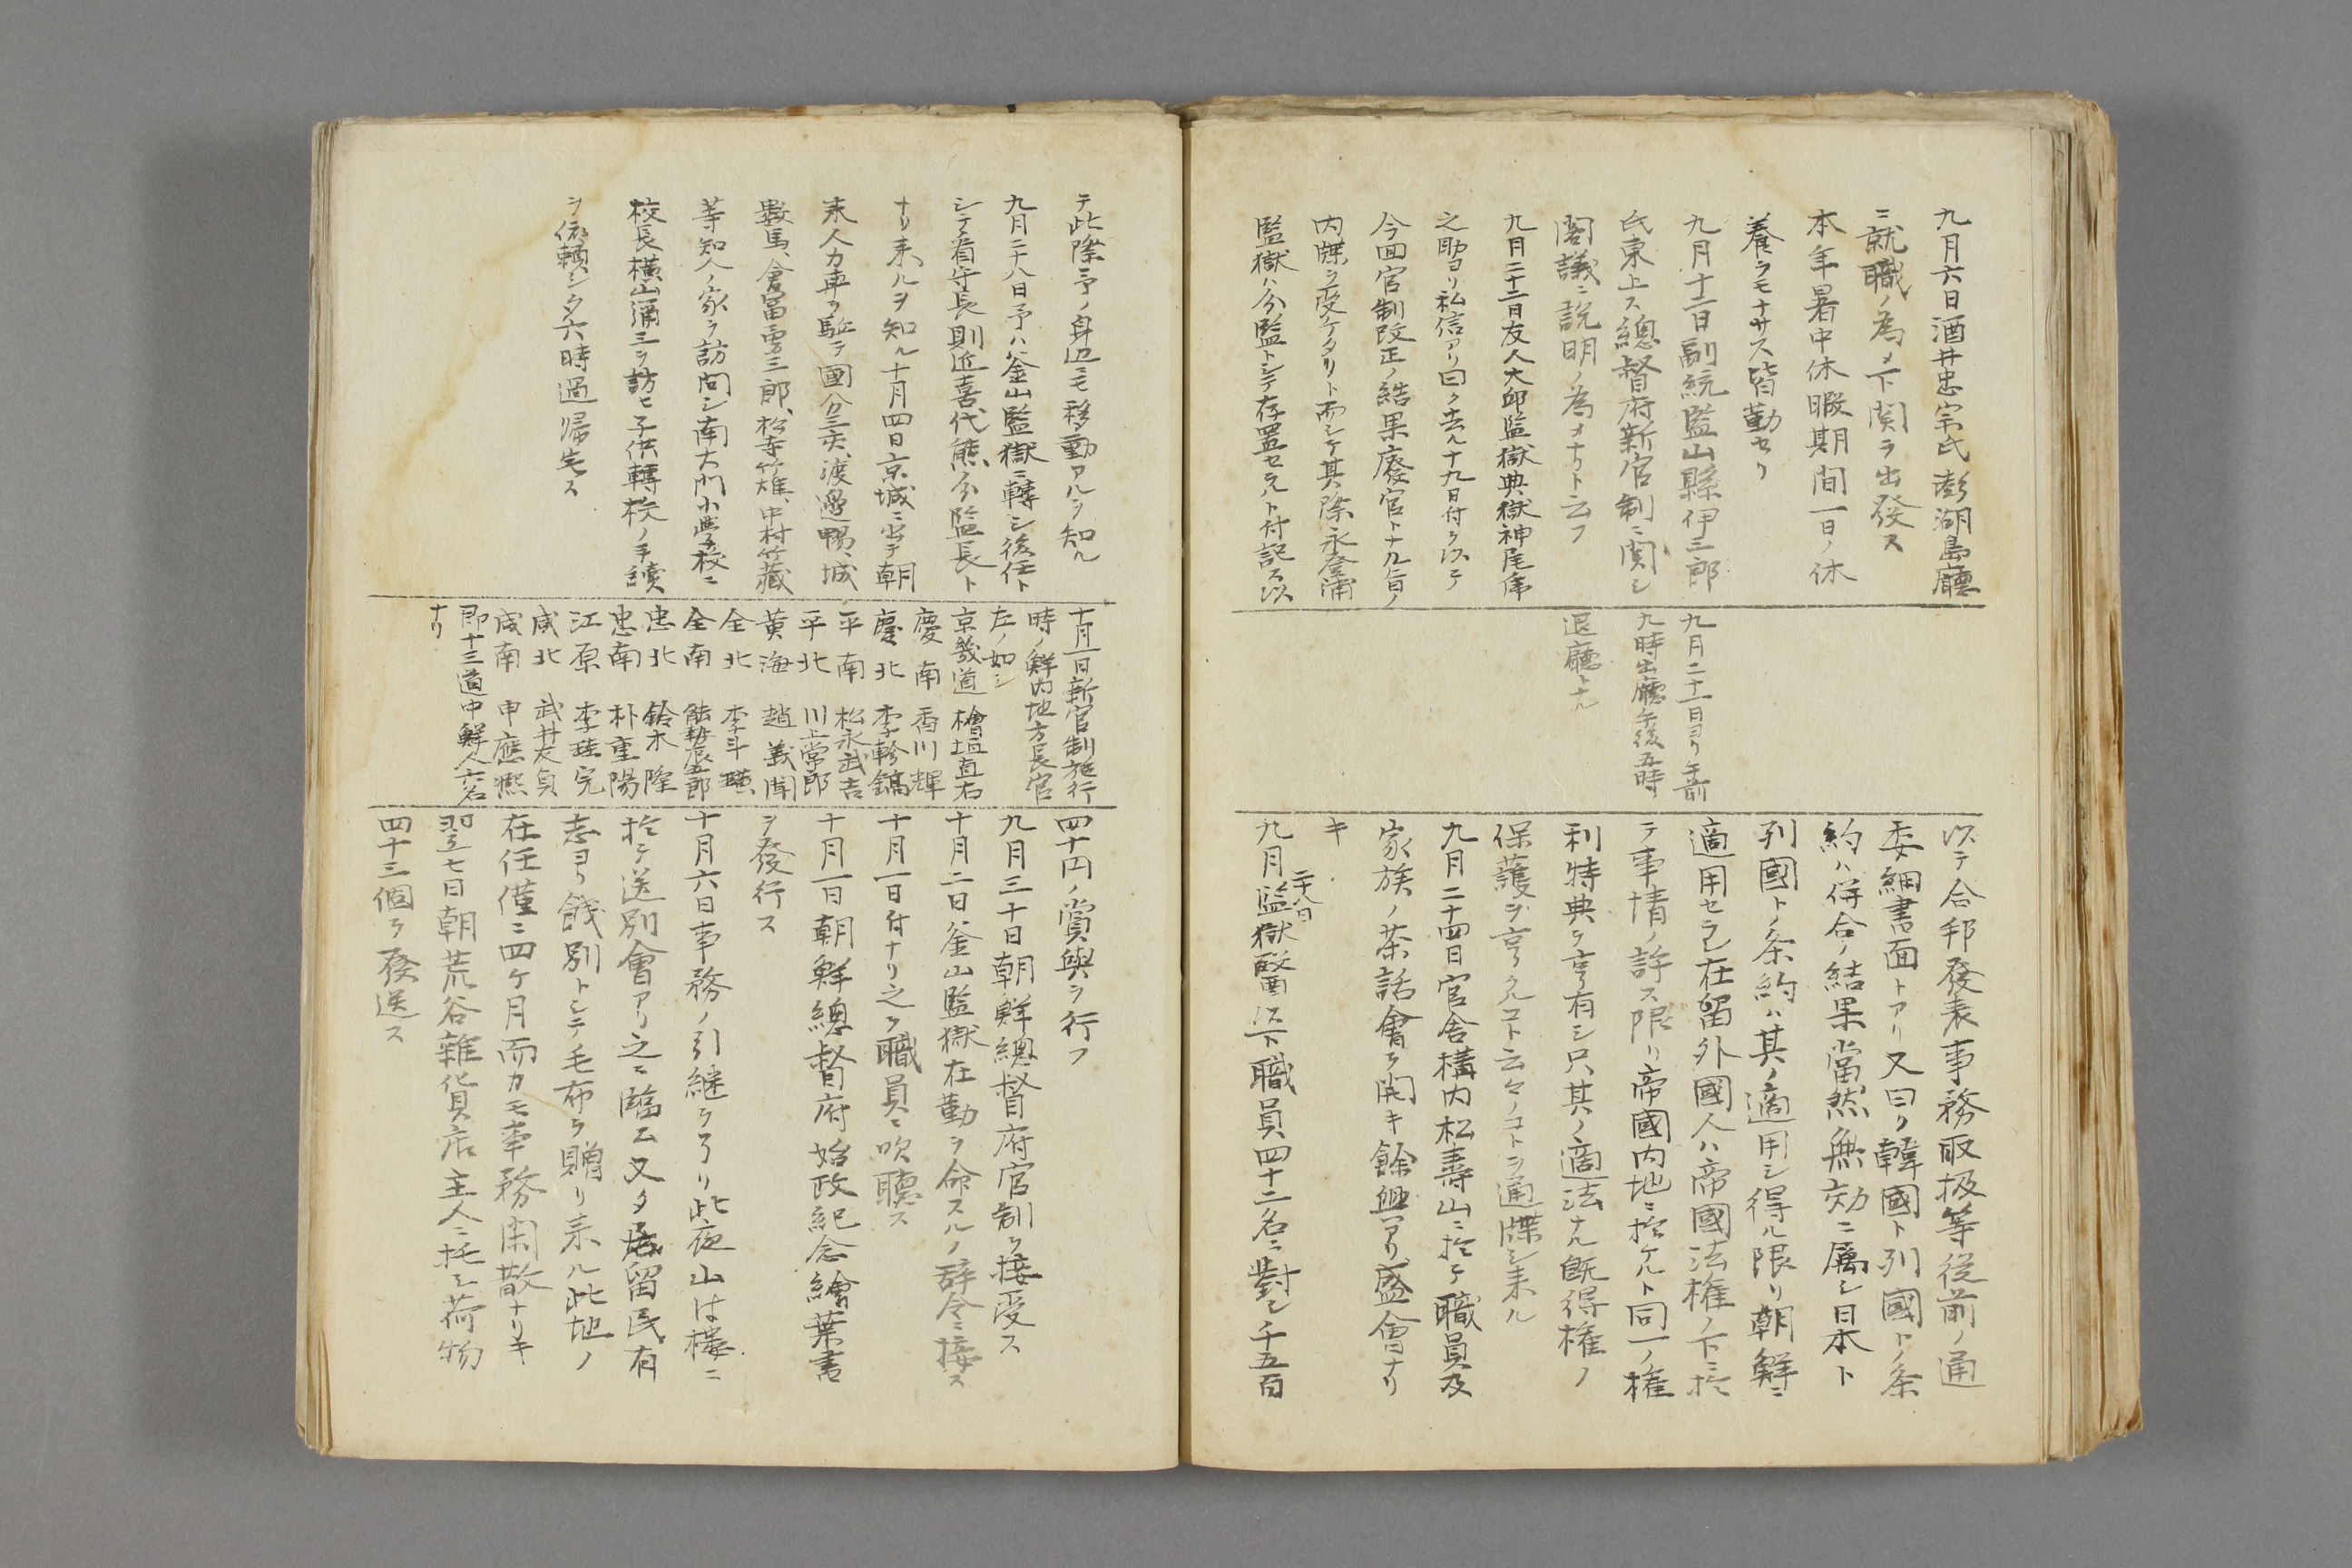 九月六日酒井忠宗氏澎湖島廳
ニ就職ノ為メ下関ヲ出發ス
本年暑中休暇期間一日ノ休
養ヲモナサス皆勤セリ
九月十二日副統監山縣伊三郎
氏東上ス總督府新官制ニ関シ
閣議ニ説明ノ為メナリト云フ
九月二十二日友人大邱監獄典獄神尾
之助ヨリ私信アリ曰ク去ル十九日付ヲ以テ
今回官制改正ノ結果廢官トナル旨ノ
内牒ヲ受ケタリト而シテ其際永登浦
監獄ハ分監トシテ存置セラルト付記ス以
九月二十一日ヨリ午前
九時出廳午後五時
退廳トナル
以テ合邦發表事務取扱等從前ノ通
委細書面トアリ又曰ク韓國ト列國トノ条
約ハ併合ノ結果當然無効ニ属シ日本ト
列國トノ条約ハ其ノ適用シ得ル限リ朝鮮ニ
適用セラレ在留外國人ハ帝國法権ノ下ニ於
テ事情ノ許ス限リ帝國内地ニ於ケルト同一ノ權
利特典ヲ享有シ只其ノ適法ナル既得権ノ
保護ヲ享クルコト云々ノコトヲ通牒シ来ル
九月二十四日官舎構内松壽山ニ於テ職員及
家族ノ茶話會ヲ開キ餘興アリ盛會ナリ
キ
九月二十八日監獄醫以下職員四十二名ニ對シ千五百
テ此際予ノ身辺ニモ移動アルヲ知ル
九月二十八日予ハ釜山監獄ニ轉シ後任ト
シテ看守長則近喜代熊分監長ト
ナリ来ルヲ知ル十月四日京城ニ出テ朝
来人力車ヲ駈テ國分三亥、渡邊暢、城
數馬、倉富勇三郎、松寺竹雄、中村竹藏
等知人ノ家ヲ訪問シ南大門小學校ニ
校長横山彌三ヲ訪ヒ子供轉校ノ手續
ヲ依頼シタ六時過帰宅ス
十月一日新官制施行
時ノ鮮内地方長官
左ノ如シ
京畿道 檜垣直右
慶南 香川輝
慶北 李軫鎬
平南 松永武吉
平北 川上常郎
黄海 趙義聞
全北 李斗璜
全南 能勢辰五郎
忠北 鈴木隆
忠南 朴重陽
江原 李圭完
咸北 武井友貞
咸南 申應熙
即十三道中鮮人六名
ナリ
四十円ノ賞與ヲ行フ
九月三十日朝鮮總督府官制ヲ接受ス
十月二日釜山監獄在勤ヲ命スルノ辞令ニ接ス
十月一日付ナリ之ヲ職員ニ吹聴ス
十月一日朝鮮總督府始政紀念繪葉書
ヲ發行ス
十月六日事務ノ引継ヲ了リ此夜山は樓ニ
於テ送別會アリ之ニ臨ム又タ居留民有
志ヨリ餞別トシテ毛布ヲ贈リ来ル此地ノ
在任僅ニ四ケ月而カモ事務閑散ナリキ
翌七日朝荒谷雑貨店主人ニ托シ荷物
四十三個ヲ發送ス